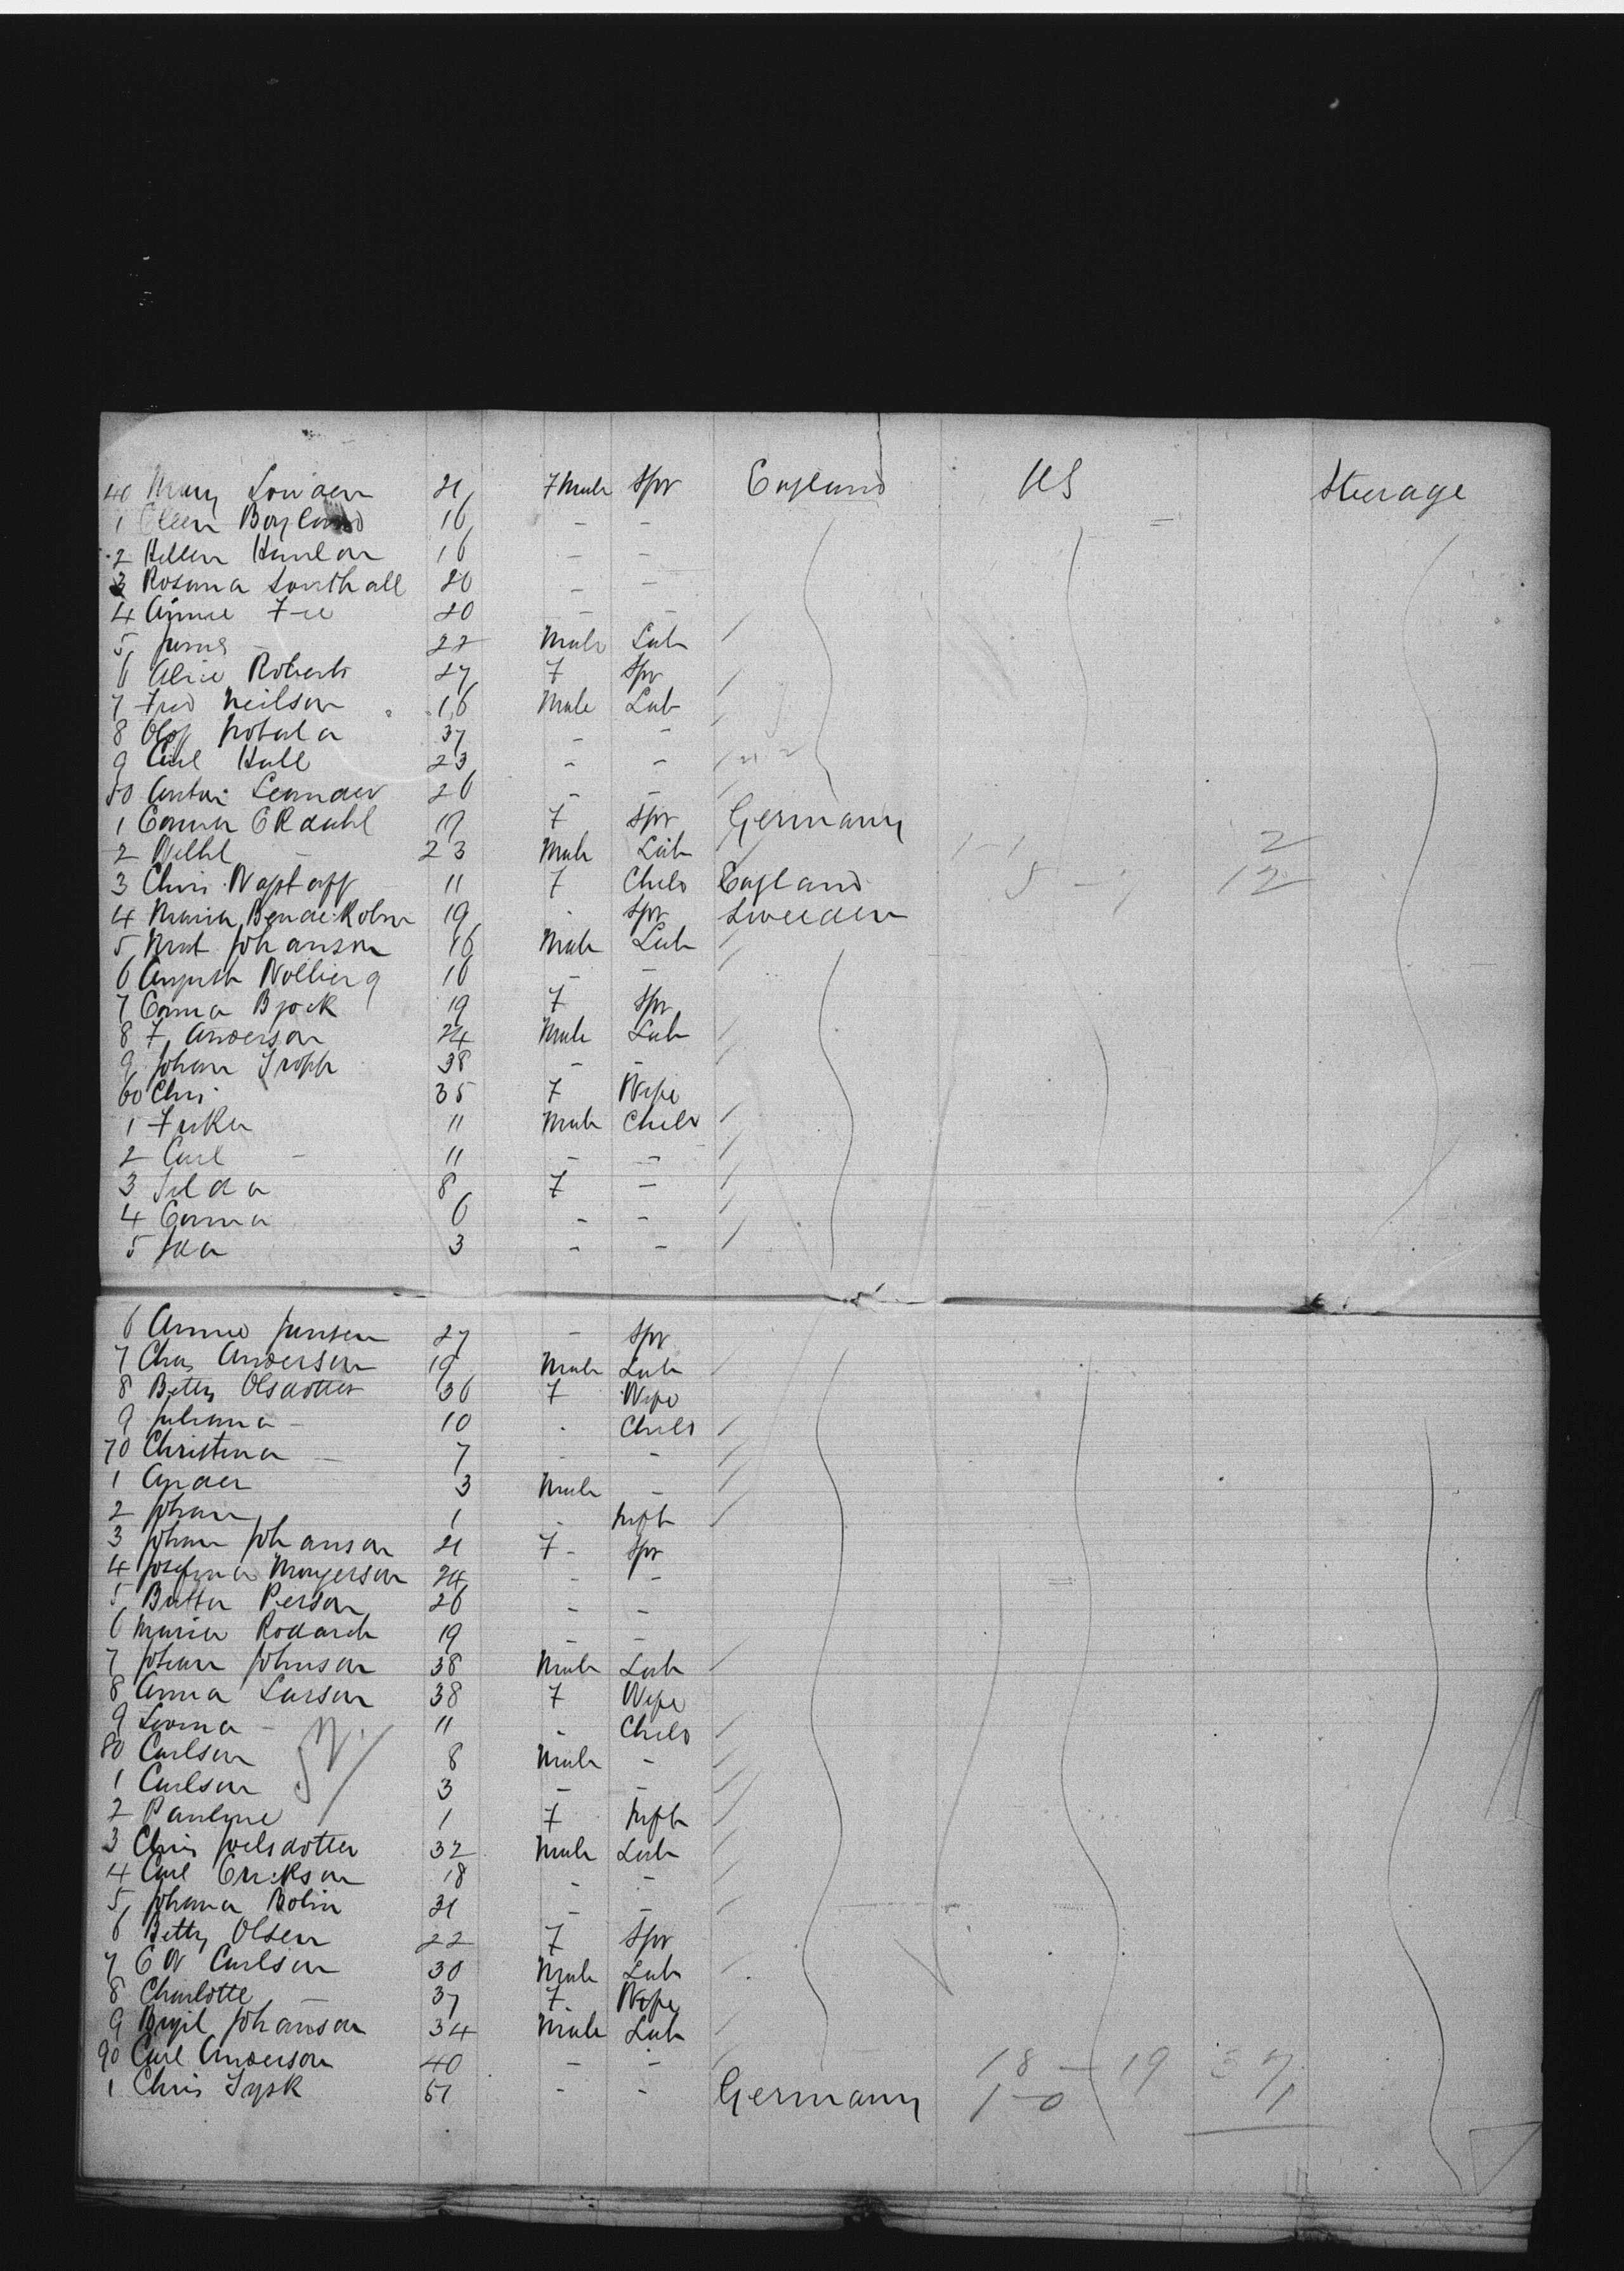 40 Mary 21 Female Spr England US Steerage
1 16 - -
2 Hellen Hanlon 16 - -
3 Rosana Southall 20 - -
4 Annie Fee 20 - -
5 James - 22 Male Lab
6 Alice Roberts 27 F Spr
7 Fred Neilson 16 Male Lab
8 Olof 37 - -
9 Carl Hall 23 - -
50 26 - -
1 Emma 19 F Spr Germany
2 Wilhl - 23 Male Lab 1-1 2
3 Chris 11 F Child England 5 - 7 12
4 Maria 19 - Spr Sweeden
5 Johanson 16 Male Lab
6 August 16 - -
7 Emma Bjork 19 F Spr
8 F Anderson 24 Male Lab
9 Johan 38 - -
60 Chris 35 F Wife
1 11 Male Child
2 Carl - 11 - -
3 8 F -
4 Emma 6 - -
5 Ida 3 - -
6 Annie Jansen 27 - Spr
7 Chas Anderson 19 Male Lab
8 Betty Olsdotter 36 F Wife
9 Juliana - 10 - Child
70 Christina - 7 - -
1 Ander 3 Male -
2 Johan 1 - Inft
3 Johan Johanson 21 F - Spr
4 Josefina 24 - -
5 Person 26 - -
6 Maria 19 - -
7 Johan Johnson 38 Male Lab
8 Anna Larson 38 F Wife
9 - 11 - Child
80 Carlson 8 Male -
1 Carlson 3 - -
2 Pauline 1 F Inft
3 Chris 32 Male Lab
4 Carl Erikson 18 - -
5 Johana Bolin 21 - -
6 Betty Olsen 22 F Spr
7 C W Carlson 30 Male Lab
8 Charlotte - 37 F Wife
9 Johanson 34 Male Lab
90 Carl Anderson 40 - - 18 - 19 37
1 Chris Tysk 51 - - Germany 1-0 1